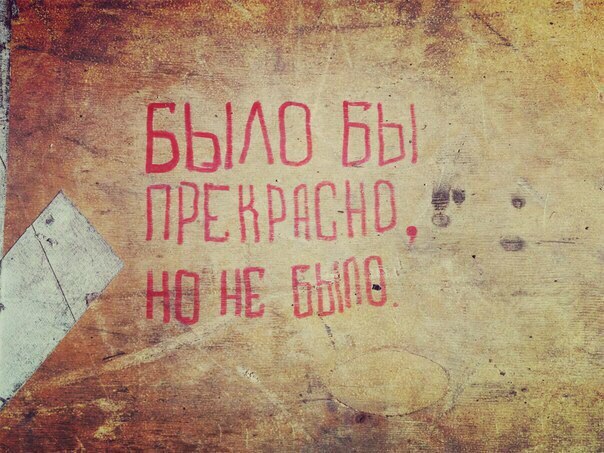 БЫЛО БЫ
ПРЕКРАСНО,
НО НЕ БЫЛО.